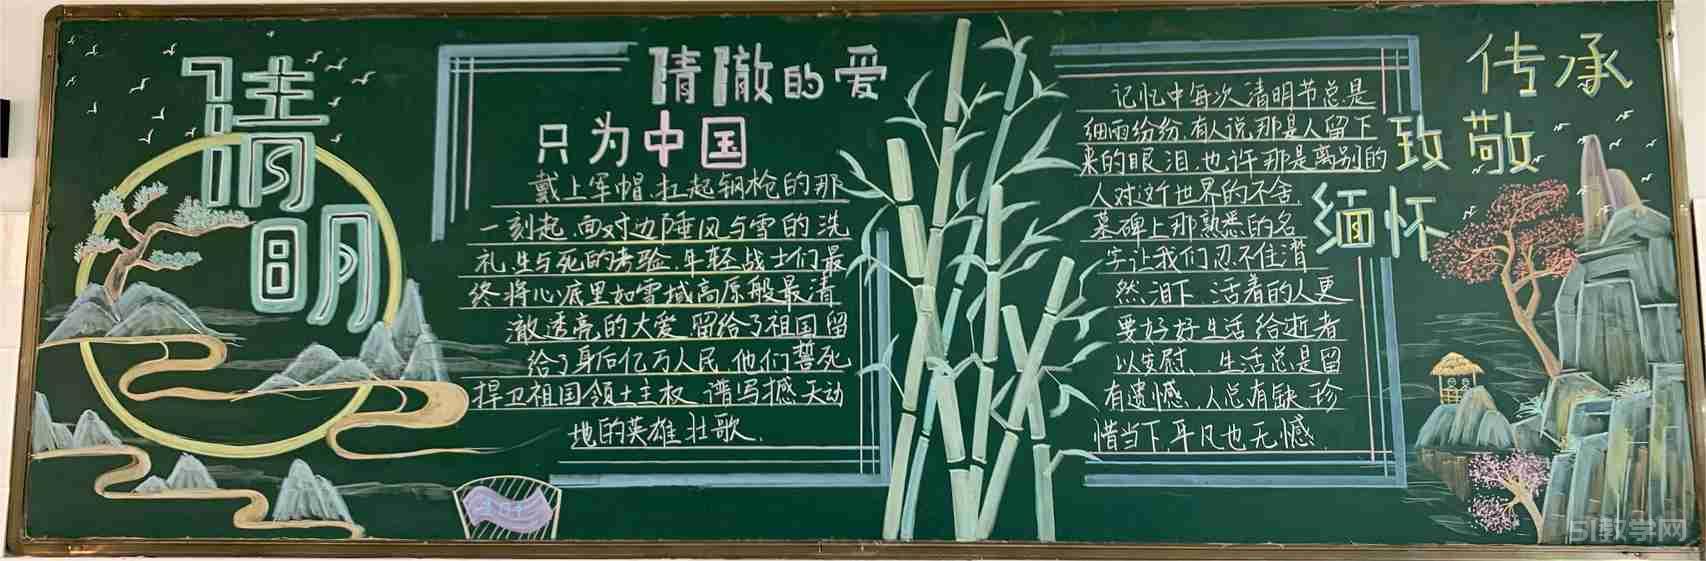 清明
清澈的爱
只为中国
戴上军帽、扛起钢枪的那
一刻起,面对边陲风与雪的洗
礼,生与死的考验,年轻战士们最
终将心底里如雪域高原般最清
澈透亮的大爱,留给了祖国留
给了身后亿万人民,他们誓死
捍卫祖国领土主权,谱写撼天动
地的英雄壮歌.
记忆中每次清明节总是
细雨纷纷,有人说,那是人留下
来的眼泪,也许那是离别的
人对这个世界的不舍.
墓碑上那熟悉的名
字让我们忍不住潸
然泪下,活着的人更
要好好生活,给逝者
以安慰、生活总是留
有遗憾,人总有缺,珍
惜当下,平凡也无憾.
传承
致敬
缅怀
51教学网